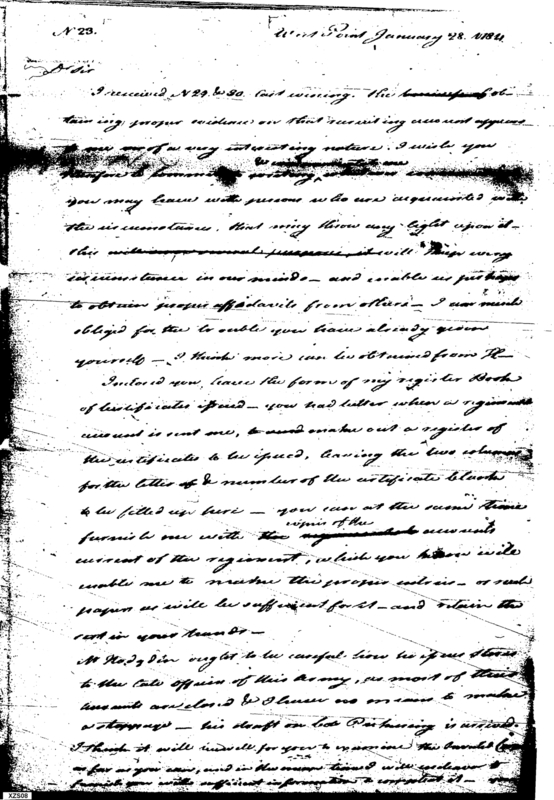 N 23. West Point January 28. 1784
D Sir
I received N 29 & 30 last evening. the ob-
taining proper evidence on that recruiting account appears
to me of a very interesting nature. I wish you
therefore to commit to writing,
you may have with persons who are acquainted with
the circumstances, that may throw any light upon it—
this will keep every
circumstance in our minds— and enable us perhaps
to obtain proper affadavits from others— I am much
obliged for the trouble you have already given
yourself— I think more can be obtained from H—
Inclosed you have the form of my register Book
of Certificates issued— you had better when a regimental
account is sent me, to make out a register of
the certificates to be issued, leaving the two columns
for the letter & number of the certificate blank
to be filled up here— you can at the same time
copies of the
furnish me with accounts
current of the regiment, which you know will
enable me to make the proper entries— or such
papers as will be sufficient for it— and retain the
rest in your hands—
Mr Hodgdon ought to be careful how he issues stores
to the late officers of this Army, as most of their
accounts are closed & I have no means to make
a stoppage— his draft on is arrived
I think it will be well for you to examine the
as far as you can, and in the mean time I will endeavor to
furnish you with sufficient information to complete it—
XZS08